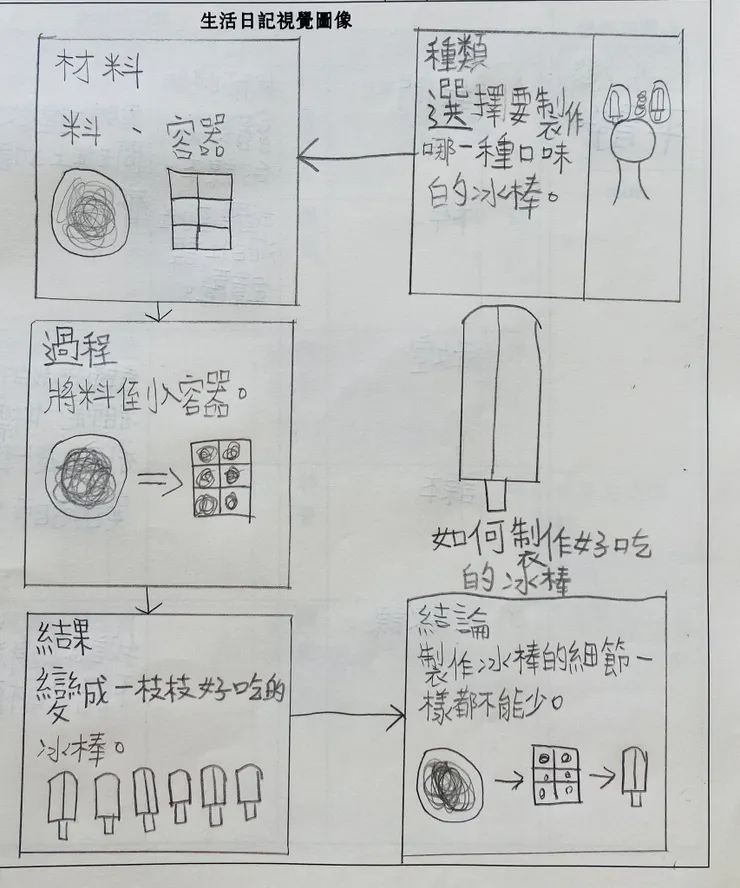 生活日記視覺圖像
種類
選擇要製作
哪一種口味
的冰棒。
材料
料、容器
過程
將料倒入容器。
結果
變成一枝枝好吃的
冰棒。
結論
製作冰棒的細節一
樣都不能少。
如何製作好吃
的冰棒